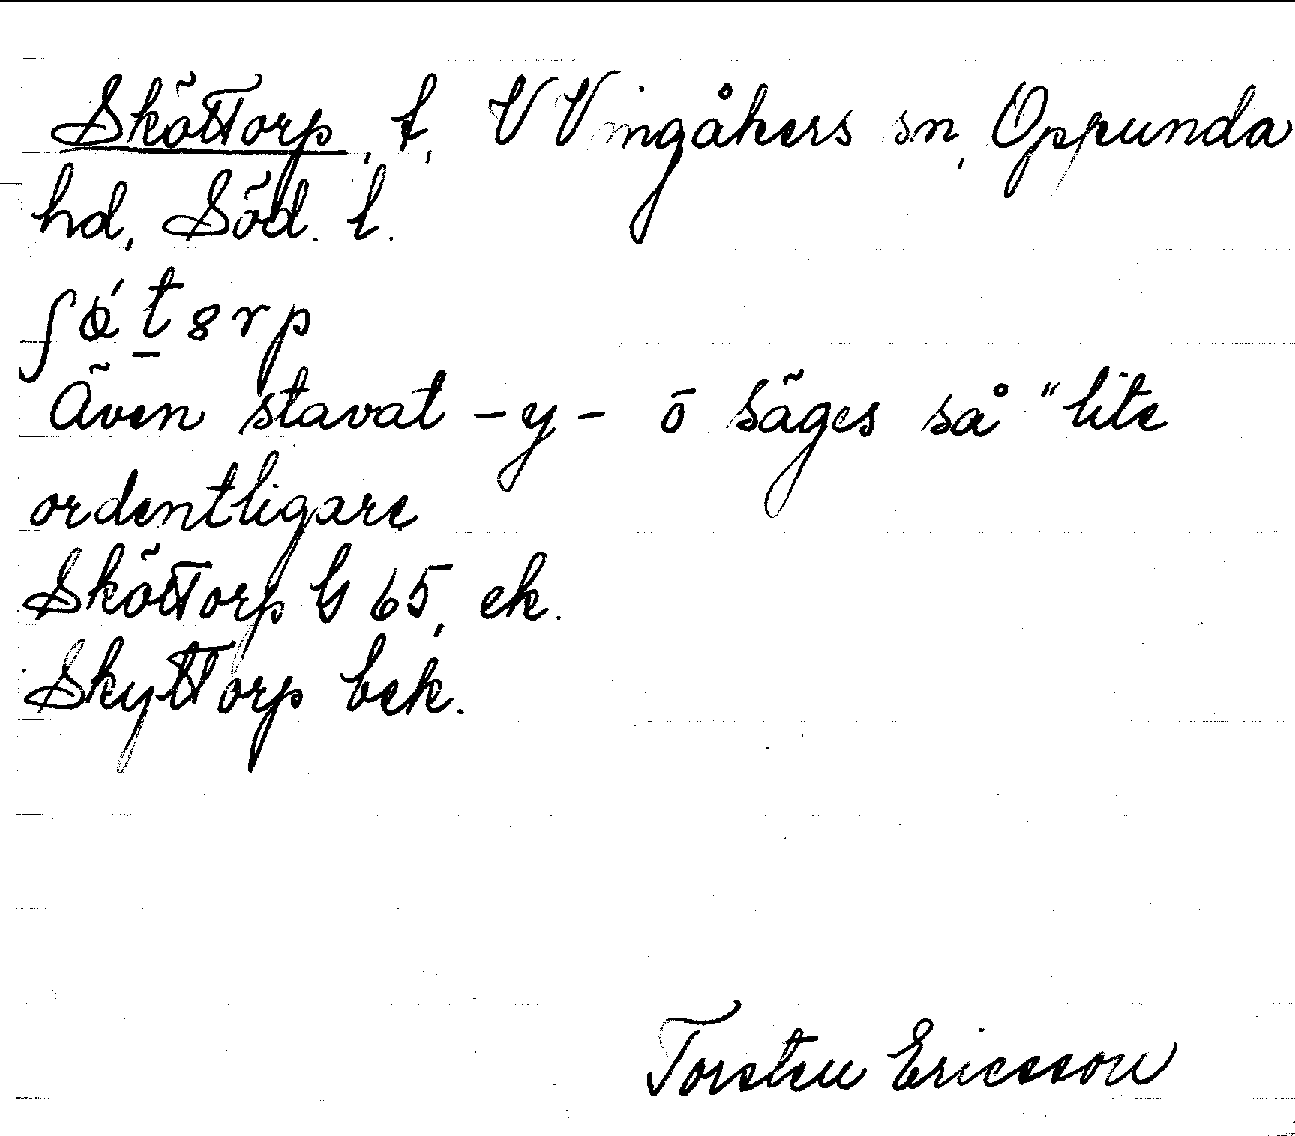 Sköttorp, t, V Vingåkers sn, Oppunda
hd, Söd. l.
ʃǿt̲ȣrp
Även stavat -y- ō säges så "lite
ordentligare
Sköttorp G 65, ek.
Skyttorp bek.
Torsten Ericsson